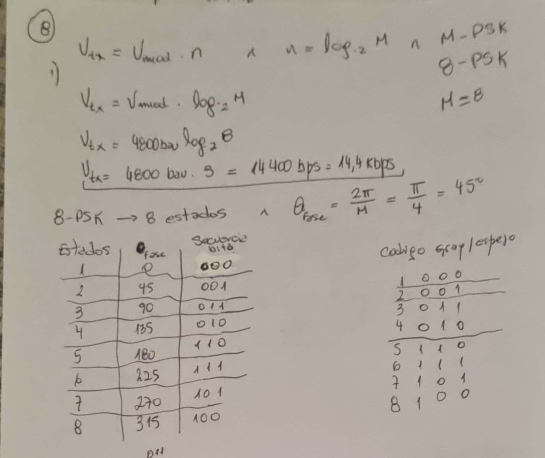 8
Vtx = Vmod . n ∧ n = log₂ M ∧ M-PSK
8-PSK
i)
Vtx = Vmod . log₂ M
M = 8
Vtx = 4800 bau log₂ 8
Vtx = 4800 bau . 3 = 14400 bps = 14,4 Kbps
8-PSK → 8 estados ∧ θfase = 2π/M = π/4 = 45°
Estados θfase Secuencia bits
1 0 000
2 45 001
3 90 011
4 135 010
5 180 110
6 225 111
7 270 101
8 315 100
Codigo gray/espejo
1 0 0 0
2 0 0 1
3 0 1 1
4 0 1 0
5 1 1 0
6 1 1 1
7 1 0 1
8 1 0 0
011